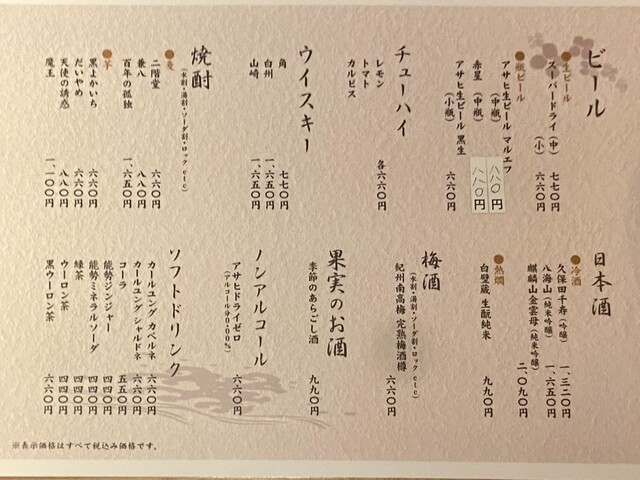 ビール
●生ビール
スーパードライ(中) 七七〇円
(小) 六六〇円
●瓶ビール
アサヒ生ビール マルエフ
(中瓶) 八八〇円
赤星(中瓶) 八八〇円
アサヒ生ビール 黒生
(小瓶) 六六〇円
チューハイ
レモン
トマト
カルピス
各六六〇円
ウイスキー
角 七七〇円
白州 一、六五〇円
山崎 一、六五〇円
焼酎
(水割・湯割・ソーダ割・ロック etc)
●麦
二階堂 六六〇円
兼八 八八〇円
百年の孤独 一、六五〇円
●芋
黒よかいち 六六〇円
だいやめ 六六〇円
天使の誘惑 八八〇円
魔王 一、一〇〇円
日本酒
●冷酒
久保田千寿(吟醸) 一、三二〇円
八海山(純米吟醸) 一、六五〇円
麒麟山金雲母(純米吟醸) 二、〇九〇円
●熱燗
白壁蔵 生酛純米 九九〇円
梅酒
(水割・湯割・ソーダ割・ロック etc)
紀州南高梅 完熟梅酒樽 六六〇円
果実のお酒
季節のあらごし酒 九九〇円
ノンアルコール
アサヒドライゼロ 六六〇円
(アルコール分0.00%)
ソフトドリンク
カールユング カベルネ 六六〇円
カールユング シャルドネ 六六〇円
コーラ 五五〇円
能勢ジンジャー 四四〇円
能勢ミネラルソーダ 四四〇円
緑茶 四四〇円
ウーロン茶 四四〇円
黒ウーロン茶 六六〇円
※表示価格はすべて税込み価格です。